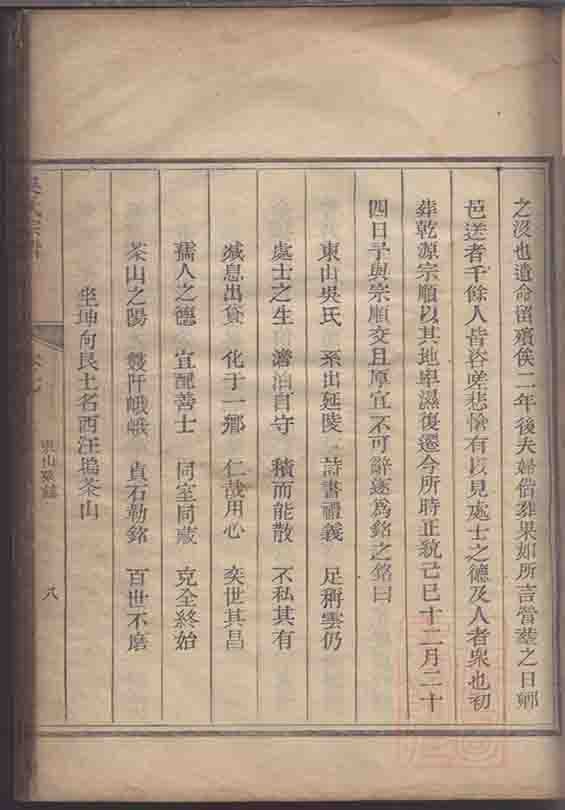 之沒也遺命留殯俟二年後夫婦偕葬果如所言當塟之日鄉
邑送者千餘人皆咨嗟悲愴有以見處士之德及人者衆也初
葬乾源宗順以其地卑濕復遷今所時正統己巳十二月二十
四日予與宗順交且厚宜不可辭遂爲銘之銘曰
東山吳氏 系出延陵 詩書禮義 足稱雲仍
處士之生 澹泊自守 積而能散 不私其有
減息出貸 化于一鄉 仁哉用心 奕世其昌
孺人之德 宜配善士 同室同藏 克全終始
茶山之陽 雙阡峨峨 貞石勒銘 百世不磨
坐坤向艮土名西汪塢茶山
吳氏宗譜
八